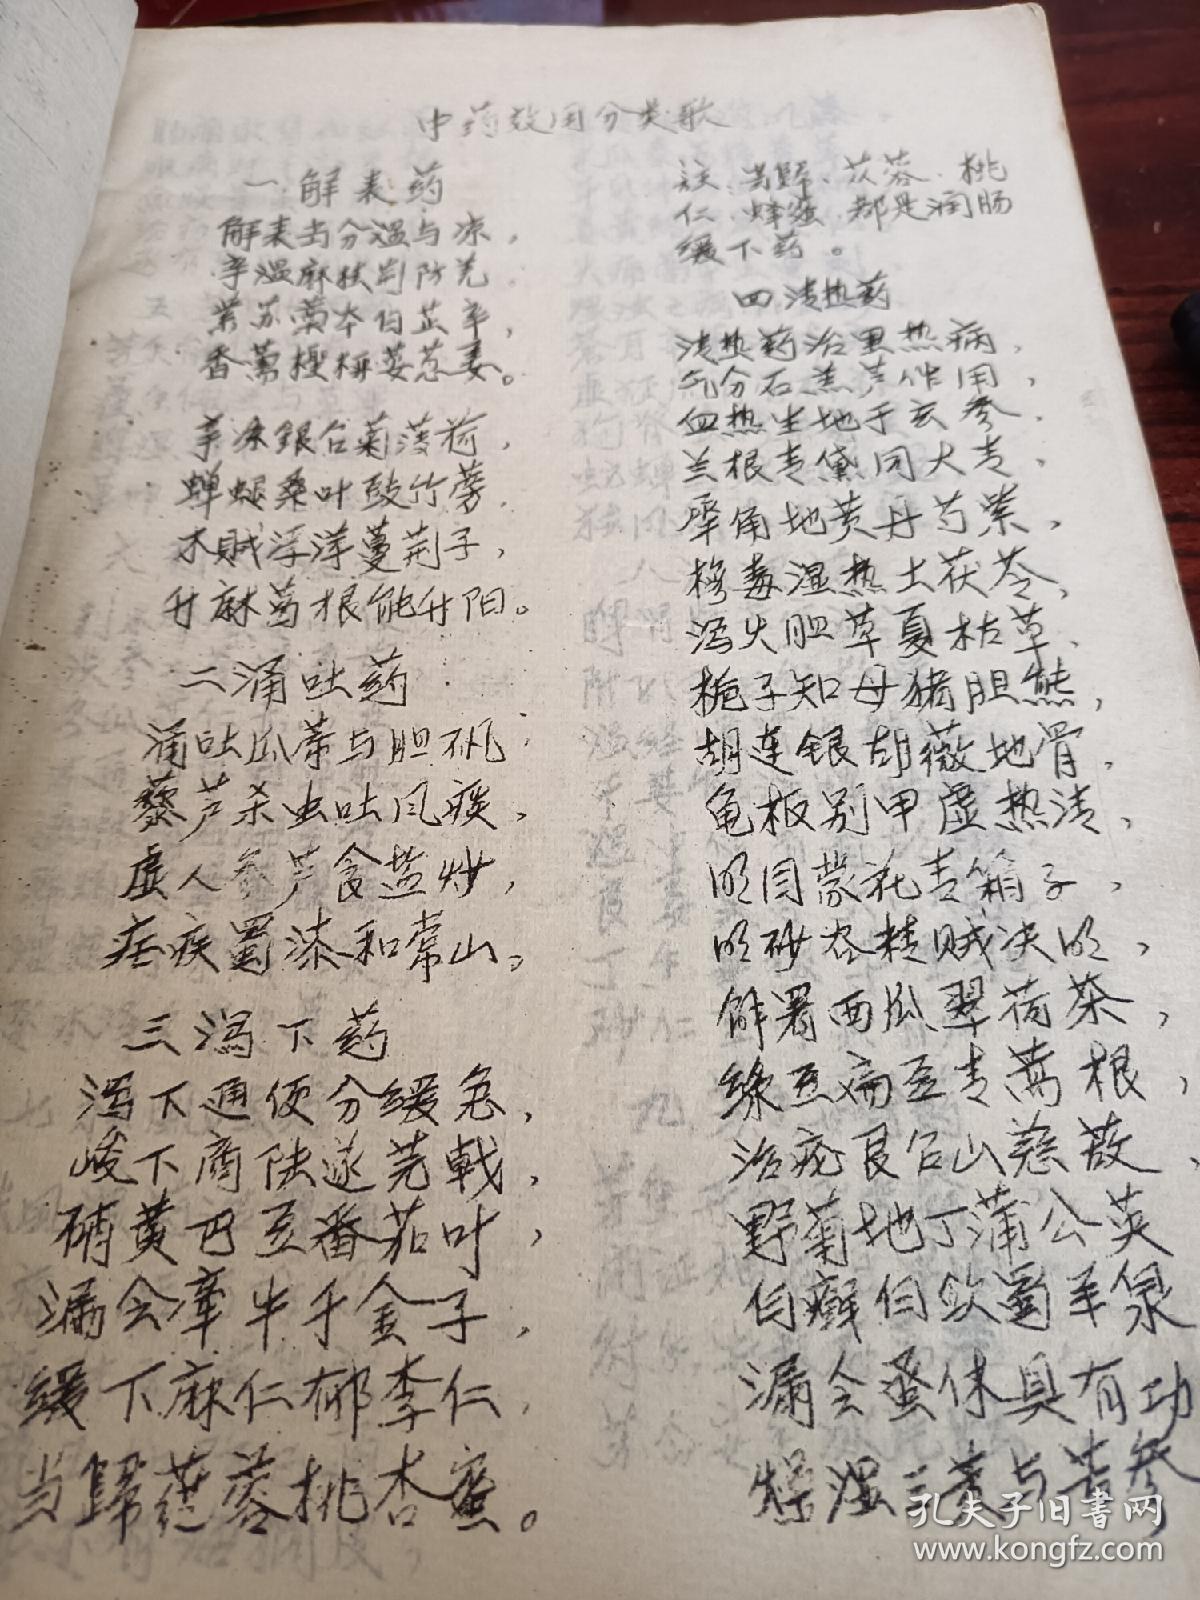 中药效用分类歌
一 解表药
解表当分温与凉，
辛温麻桂荆防羌。
紫苏藁本白芷辛，
香薷柽柳荽葱姜。
辛凉银谷菊薄荷，
蝉蜕桑叶豉竹蒡
木贼浮萍蔓荆子，
升麻葛根能升阳。
二 涌吐药
涌吐瓜蒂与胆矾，
藜芦杀虫吐风痰，
虚人参芦食盐炒，
疟疾蜀漆和常山。
三 泻下药
泻下通便分缓急，
峻下商陆遂芫戟，
硝黄巴豆番茄叶，
漏会牵牛千金子，
缓下麻仁郁李仁，
当歸苁蓉桃杏蜜。
注：当歸、苁蓉、桃
仁、蜂蜜、都是润肠
缓下药。
四 清热药
清热药治里热病，
气分石羔芦作用，
血热生地于玄参，
兰根青黛同大青，
犀角地黄丹芍紫，
梅毒湿热土茯苓，
泻火胆草夏枯草，
栀子知母猪胆熊，
胡连银胡薇地骨，
龟板别甲虚热清，
明目蒙花青箱子，
明砂谷精贼决明，
解署西瓜翠荷茶，
绿豆扁豆青蒿根，
治疮艮白山慈菇，
野菊地丁蒲公英
白癣白敛蜀羊泉
漏会蚤休具有功
燥湿三黄与苦参
孔夫子旧书网
www.kongfz.com